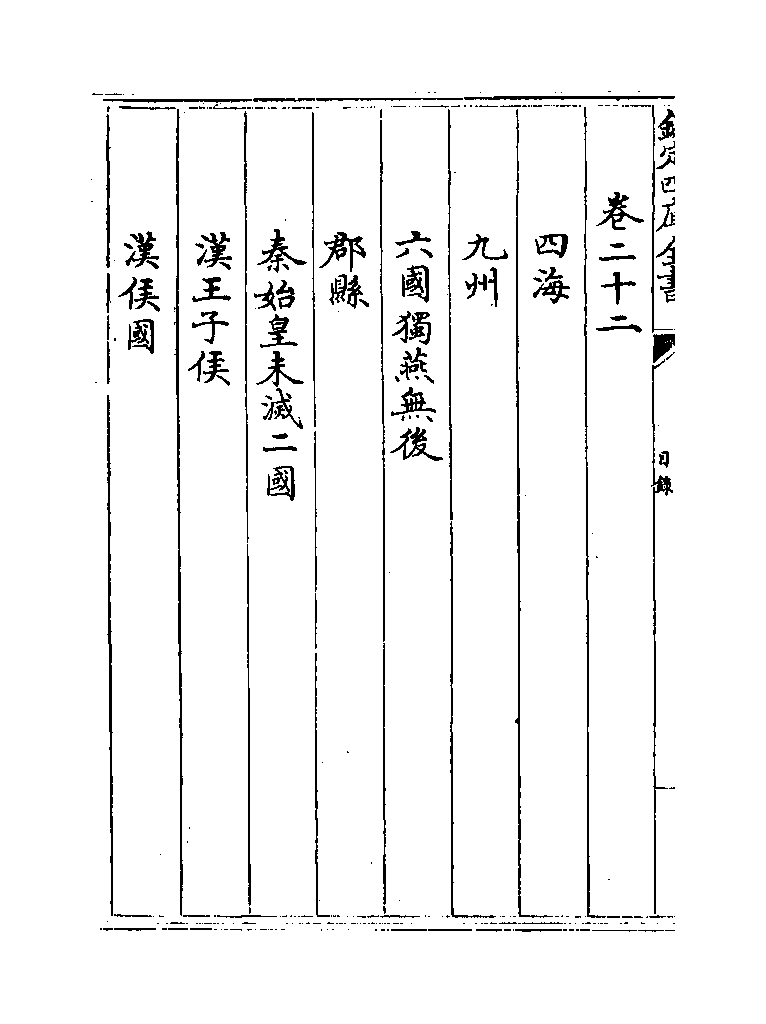 欽定四庫全書
目錄
卷二十二
四海
九州
六國獨燕無後
郡縣
秦始皇未滅二國
漢王子侯
漢侯國